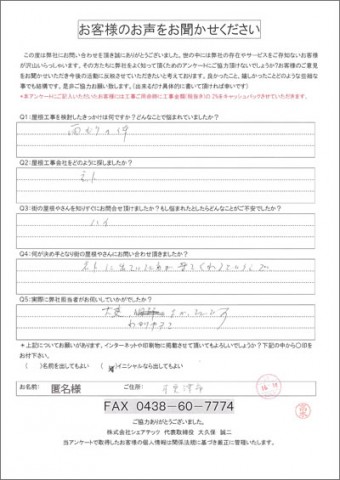 お客様のお声をお聞かせください
この度は弊社にお問い合わせを頂き誠にありがとうございました。世の中には弊社の存在やサービスをご存知ないお客様
が沢山いらっしゃいます。その方たちに弊社をよく知って頂くためのアンケートにご協力頂けないでしょうか?お客様のご意見
をお聞かせいただき今後の活動に反映させていただきたいと考えております。良かったこと、嬉しかったことどのような些細な
事でも結構です。是非ご協力お願い致します。(出来るだけ具体的に書いて頂ければ幸いです)
*本アンケートにご記入いただいたお客様には工事ご用命時に工事金額(税抜き)の2%をキャッシュバックさせていただきます。
Q1:屋根工事を検討したきっかけは何ですか?どんなことで悩まれていましたか?
雨もりの件
Q2:屋根工事会社をどのように探しましたか?
ネット
Q3:街の屋根やさんを知りすぐにお問合せ頂けましたか?もし悩まれたとしたらどんなことがご不安でしたか?
ハイ
Q4:何が決め手となり街の屋根やさんにお問い合わせ頂きましたか?
ネットに出ていた
Q5:実際に弊社担当者がお伺いしていかがでしたか?
大変
*上記についてお願いがあります。インターネットや印刷物に掲載させて頂いてもよろしいでしょうか?下記の中から〇印を
お付下さい。
( )名前を出してもよい ( )イニシャルなら出してもよい
お名前: 匿名様 ご住所: 木更津市
FAX 0438-60-7774
ご協力ありがとうございました。
株式会社シェアテック 代表取締役 大久保 誠二
当アンケートで取得したお客様の個人情報は関係法規に基づき厳正に管理いたします。